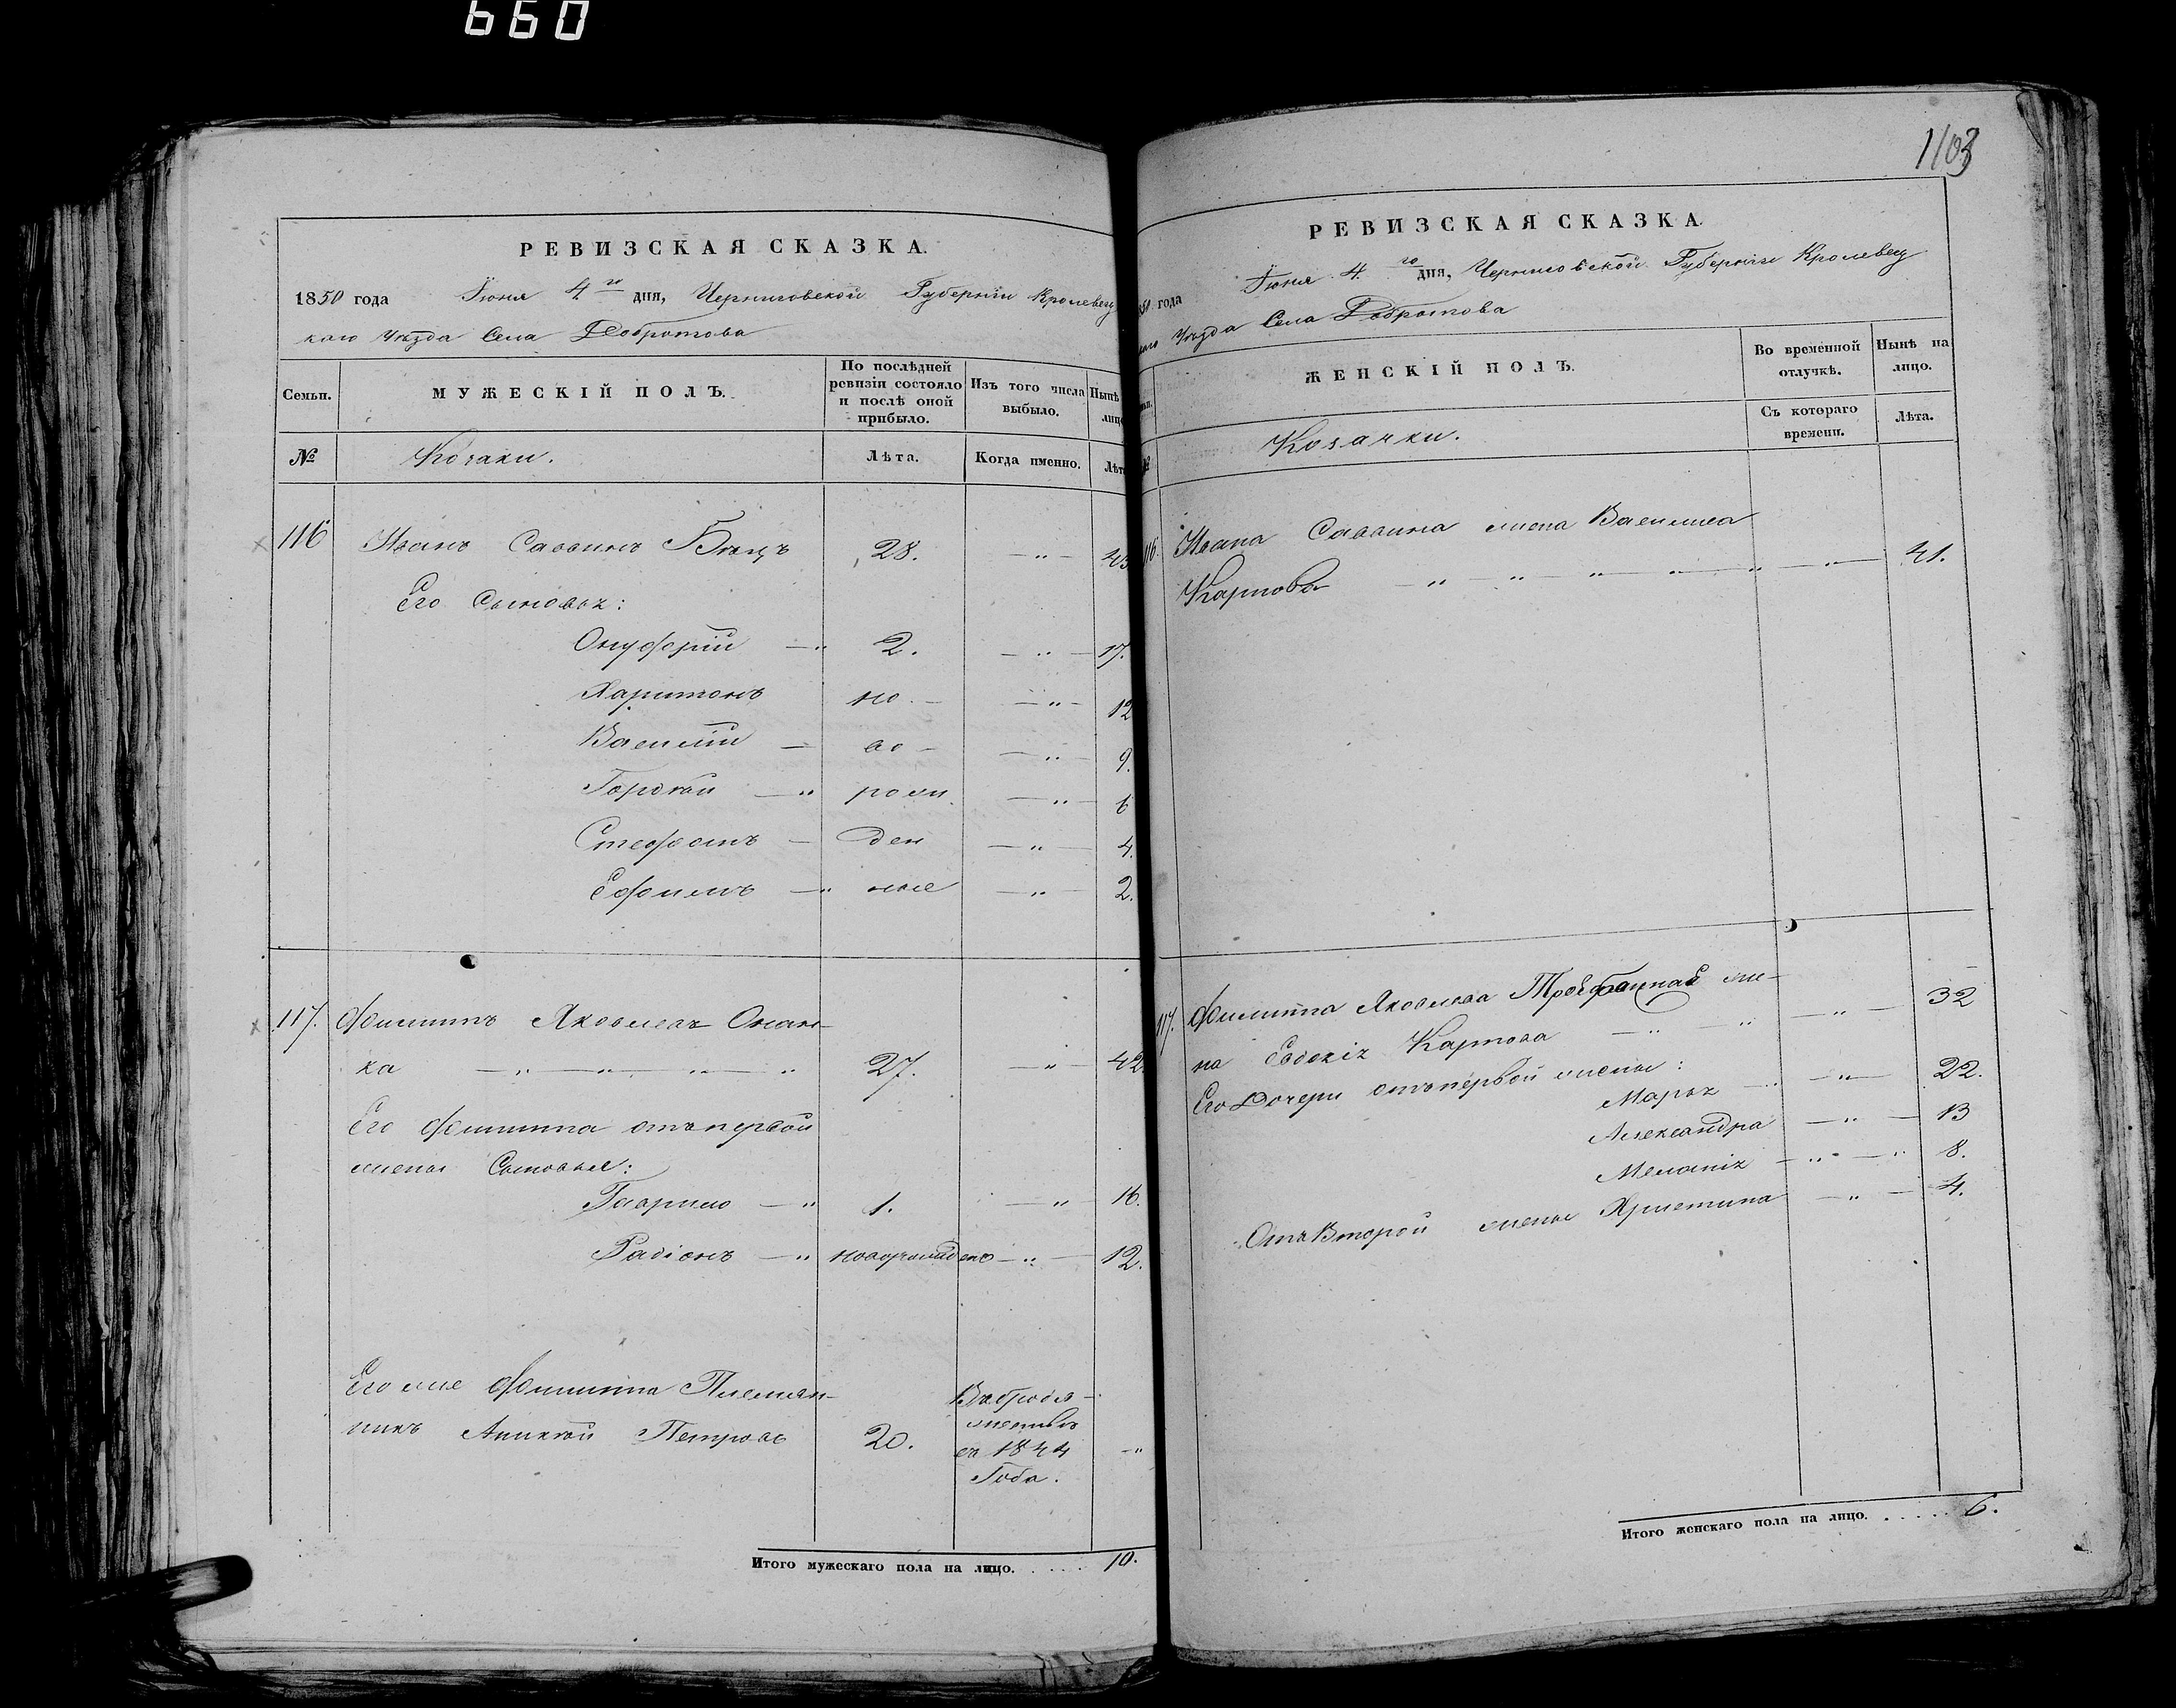 660
РЕВИЗСКАЯ СКАЗКА.
1850 года Іюня 4го дня, Черниговской Губерніи Кролевец
каго Уѣзда Села Добротова
Семьи.
МУЖЕСКІЙ ПОЛЪ.
По послѣдней ревизіи состояло и послѣ оной прибыло.
Изъ того числа выбыло.
Нынѣ
лицо
№
Козаки.
Лѣта.
Когда именно.
Лѣта
116 Иванъ Саввинъ 28. 43
Его Сыновья:
Онуфрій 2. 17.
Харитонъ но 12
Василій во 9.
Гордѣй рожд 6
Стефанъ ден 4.
Ефимъ ные 2.
117. Филиппъ Яковлевъ Онан-
ка 27. 42.
Его Филиппа отъ первой
жены Сыновья:
Гаврило 1. 16.
Радіонъ новорожденъ 12.
Его же Филиппа Племян-
никъ Аникѣй Петровъ 20.
Въ бродя-
жествѣ
съ 1844
Года.
Итого мужескаго пола на лицо. 10.
1103
РЕВИЗСКАЯ СКАЗКА.
850 года Іюня 4го дня, Черниговской Губерніи Кролевец
каго Уѣзда Села Добротова
ЖЕНСКІЙ ПОЛЪ.
Во временной отлучкѣ.
Нынѣ на лицо.
Съ котораго времени.
Лѣта.
Козачки.
116. Ивана Саввина жена Василиса
Карпова 41.
117. Филиппа Яковлева жи-
на Евдокія Карпова 32
Его Дочери отъ первой жены:
Марья 22.
Александра 13
Меланія 8.
Отъ Второй жены Христина 4.
Итого женскаго пола на лицо. 6.